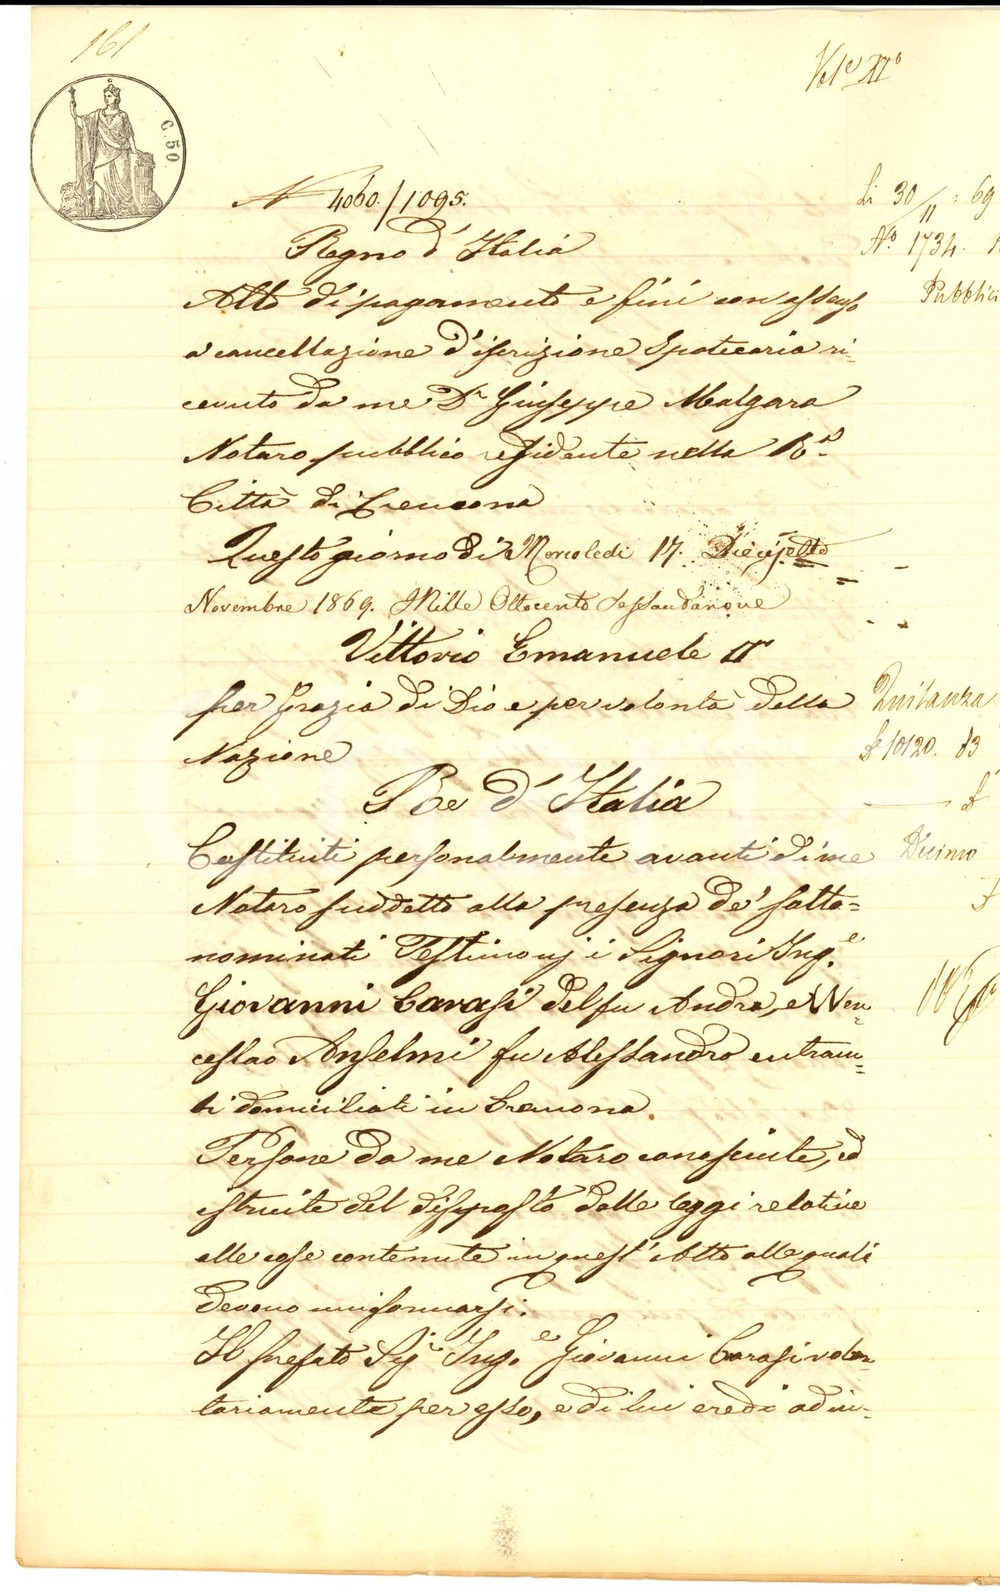 161
Vol.e XI°
C. 50
N 4060./1095.
Regno d'Italia
Atto di pagamento e fini con assenso
a cancellazione d'iscrizione Ipotecaria ri-
cevuto da me Dr. Giuseppe Malgara
Notaro pubblico residente nella Ra.
Città di Cremona
Questo giorno di Mercoledi 17. Diecisette
Novembre 1869. Mille Ottocento Sessantanove
Vittorio Emanuele II
per grazia di Dio e per volontà della
Nazione
Re d'Italia
Costituiti personalmente avanti di me
Notaro suddetto alla presenza de' sotto=
nominati Testimonj i Signori Ing.e
Giovanni Carasi del fu Andrea, e Wen=
ceslao Anselmi fu Alessandro entram=
bi domiciliati in Cremona.
Persone da me Notaro conosciute, ed
istruite del disposto delle leggi relative
alle cose contenute in quest'Atto alle quali
devono uniformarsi.
Il prefato Sig.r Ing.e Giovanni Carasi volon-
tariamente per esso, e di lui eredi ad in-
Li 30/11 = 69
N° 1734.
Pubblici
Quitanza
£ 10120. 83
£
Decimo